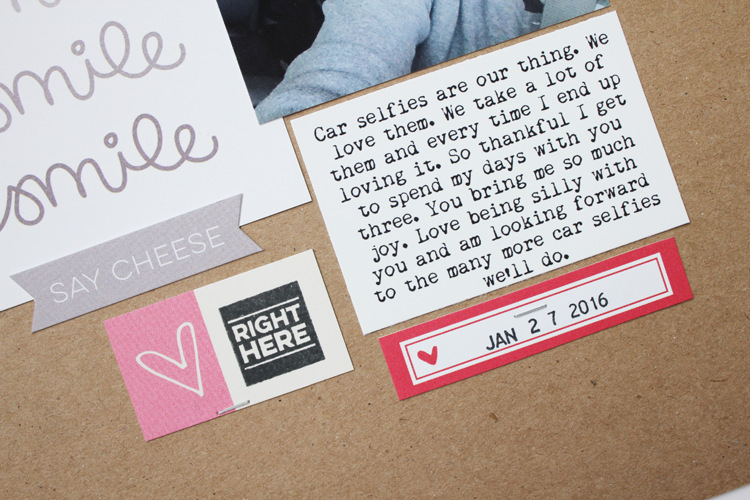 smile
smile
SAY CHEESE
RIGHT
HERE
Car selfies are our thing. We
love them. We take a lot of
them and every time I end up
loving it. So thankful I get
to spend my days with you
three. You bring me so much
joy. Love being silly with
you and am looking forward
to the many more car selfies
we'll do.
JAN 27 2016